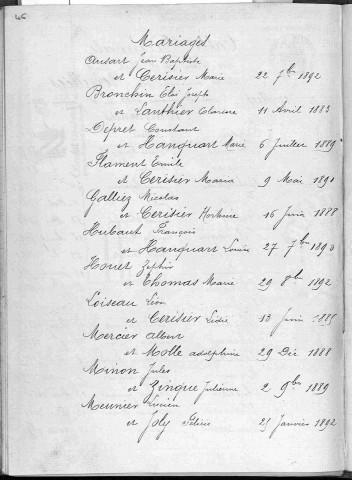 46
Mariages
Ansart Jean Baptiste
et Cerisier Marie 22 7bre 1892
Bronchin Eloi Joseph
et Lanthier Clarisse 11 Avril 1883
Depret Constant
et Hanquart Marie 6 Juillet 1889
Flament Emile
et Cerisier Maria 9 Mai 1891
Galliez Nicolas
et Cerisier Hortense 16 Juin 1888
Hubaut François
et Hanquart Louise 27 7bre 1890
Houet Zéphir
et Thomas Marie 29 8bre 1892
Loiseau Léon
et Cerisier Lidie 13 Juin 1885
Mercier Albert
et Molle Adolphine 29 Déc 1888
Minon Jules
et Zingue Julienne 2 9bre 1889
Meunier Lucien
et Joly 25 Janvier 1892